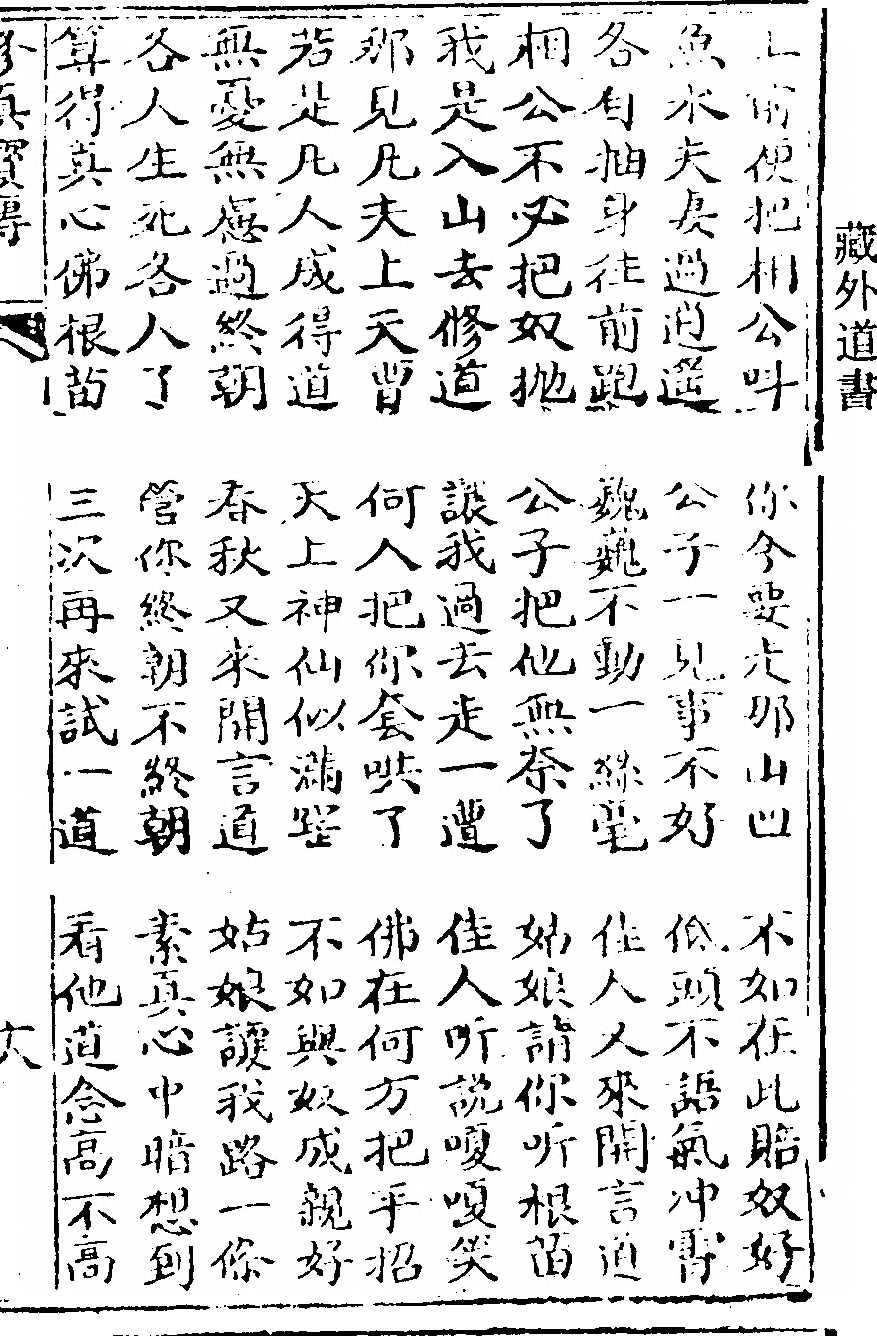 藏外道書
上前便把相公叫　你今要走那山凹　不如在此賠奴好
魚水夫妻過逍遙　公子一見事不好　低頭不語氣冲霄
各自抽身往前跑　巍巍不動一絲毫　佳人又來開言道
相公不必把奴拋　公子把他無奈了　姑娘請你听根苗
我是入山去修道　讓我過去走一遭　佳人听說嗄嗄笑
那見凡夫上天曹　何人把你套哄了　佛在何方把手招
若是凡人成得道　天上神仙似滿　不如與奴成親好
無憂無慮過終朝　春秋又來開言道　姑娘讓我路一條
各人生死各人了　管你終朝不終朝　素真心中暗想到
算得真心佛根苗　三次再來試一道　看他道念高不高
真寶傳